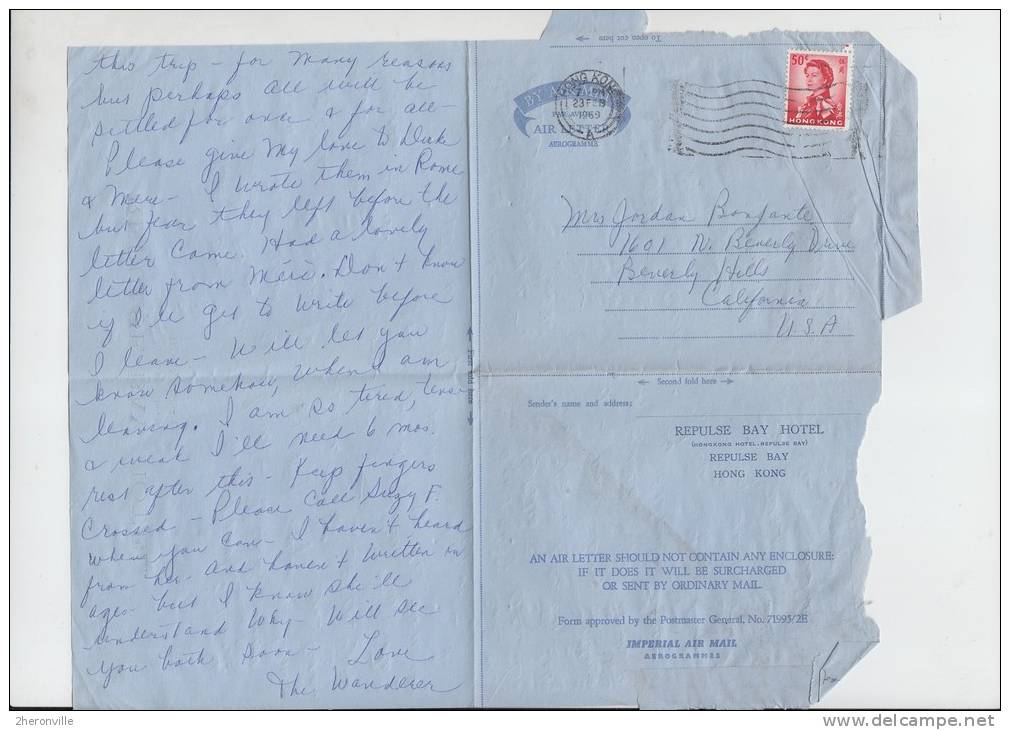 this trip - for many reasons
but perhaps all will be
settled for once & for all -
Please give my love to Duke
& Mere - I wrote them in Rome
but fear they left before the
letter came. Had a lovely
letter from Mere. Don't know
if I'll get to write before
I leave - Will let you
know somehow, when I am
leaving. I am so tired, tense
& weak I'll need 6 mos.
rest after this - Keep fingers
crossed - Please call Suzy F.
when you can - I haven't heard
from her - and haven't written in
ages - but I know she'll
understand why - Will see
you both soon - Love
The Wanderer
To open cut here
BY AIR MAIL
PAR AVION
AIR LETTER
AEROGRAMME
HONG KONG
7 PM
23 FEB
1969
A
50¢
HONG KONG
Mrs Jordan Bonfante
1601 N. Beverly Drive
Beverly Hills
California
U.S.A
First fold here
Second fold here
Sender's name and address:
REPULSE BAY HOTEL
(HONGKONG HOTEL-REPULSE BAY)
REPULSE BAY
HONG KONG
AN AIR LETTER SHOULD NOT CONTAIN ANY ENCLOSURE:
IF IT DOES IT WILL BE SURCHARGED
OR SENT BY ORDINARY MAIL.
Form approved by the Postmaster General, No. 71995/2E
IMPERIAL AIR MAIL
AEROGRAMMES
2heronville
www.delcampe.net